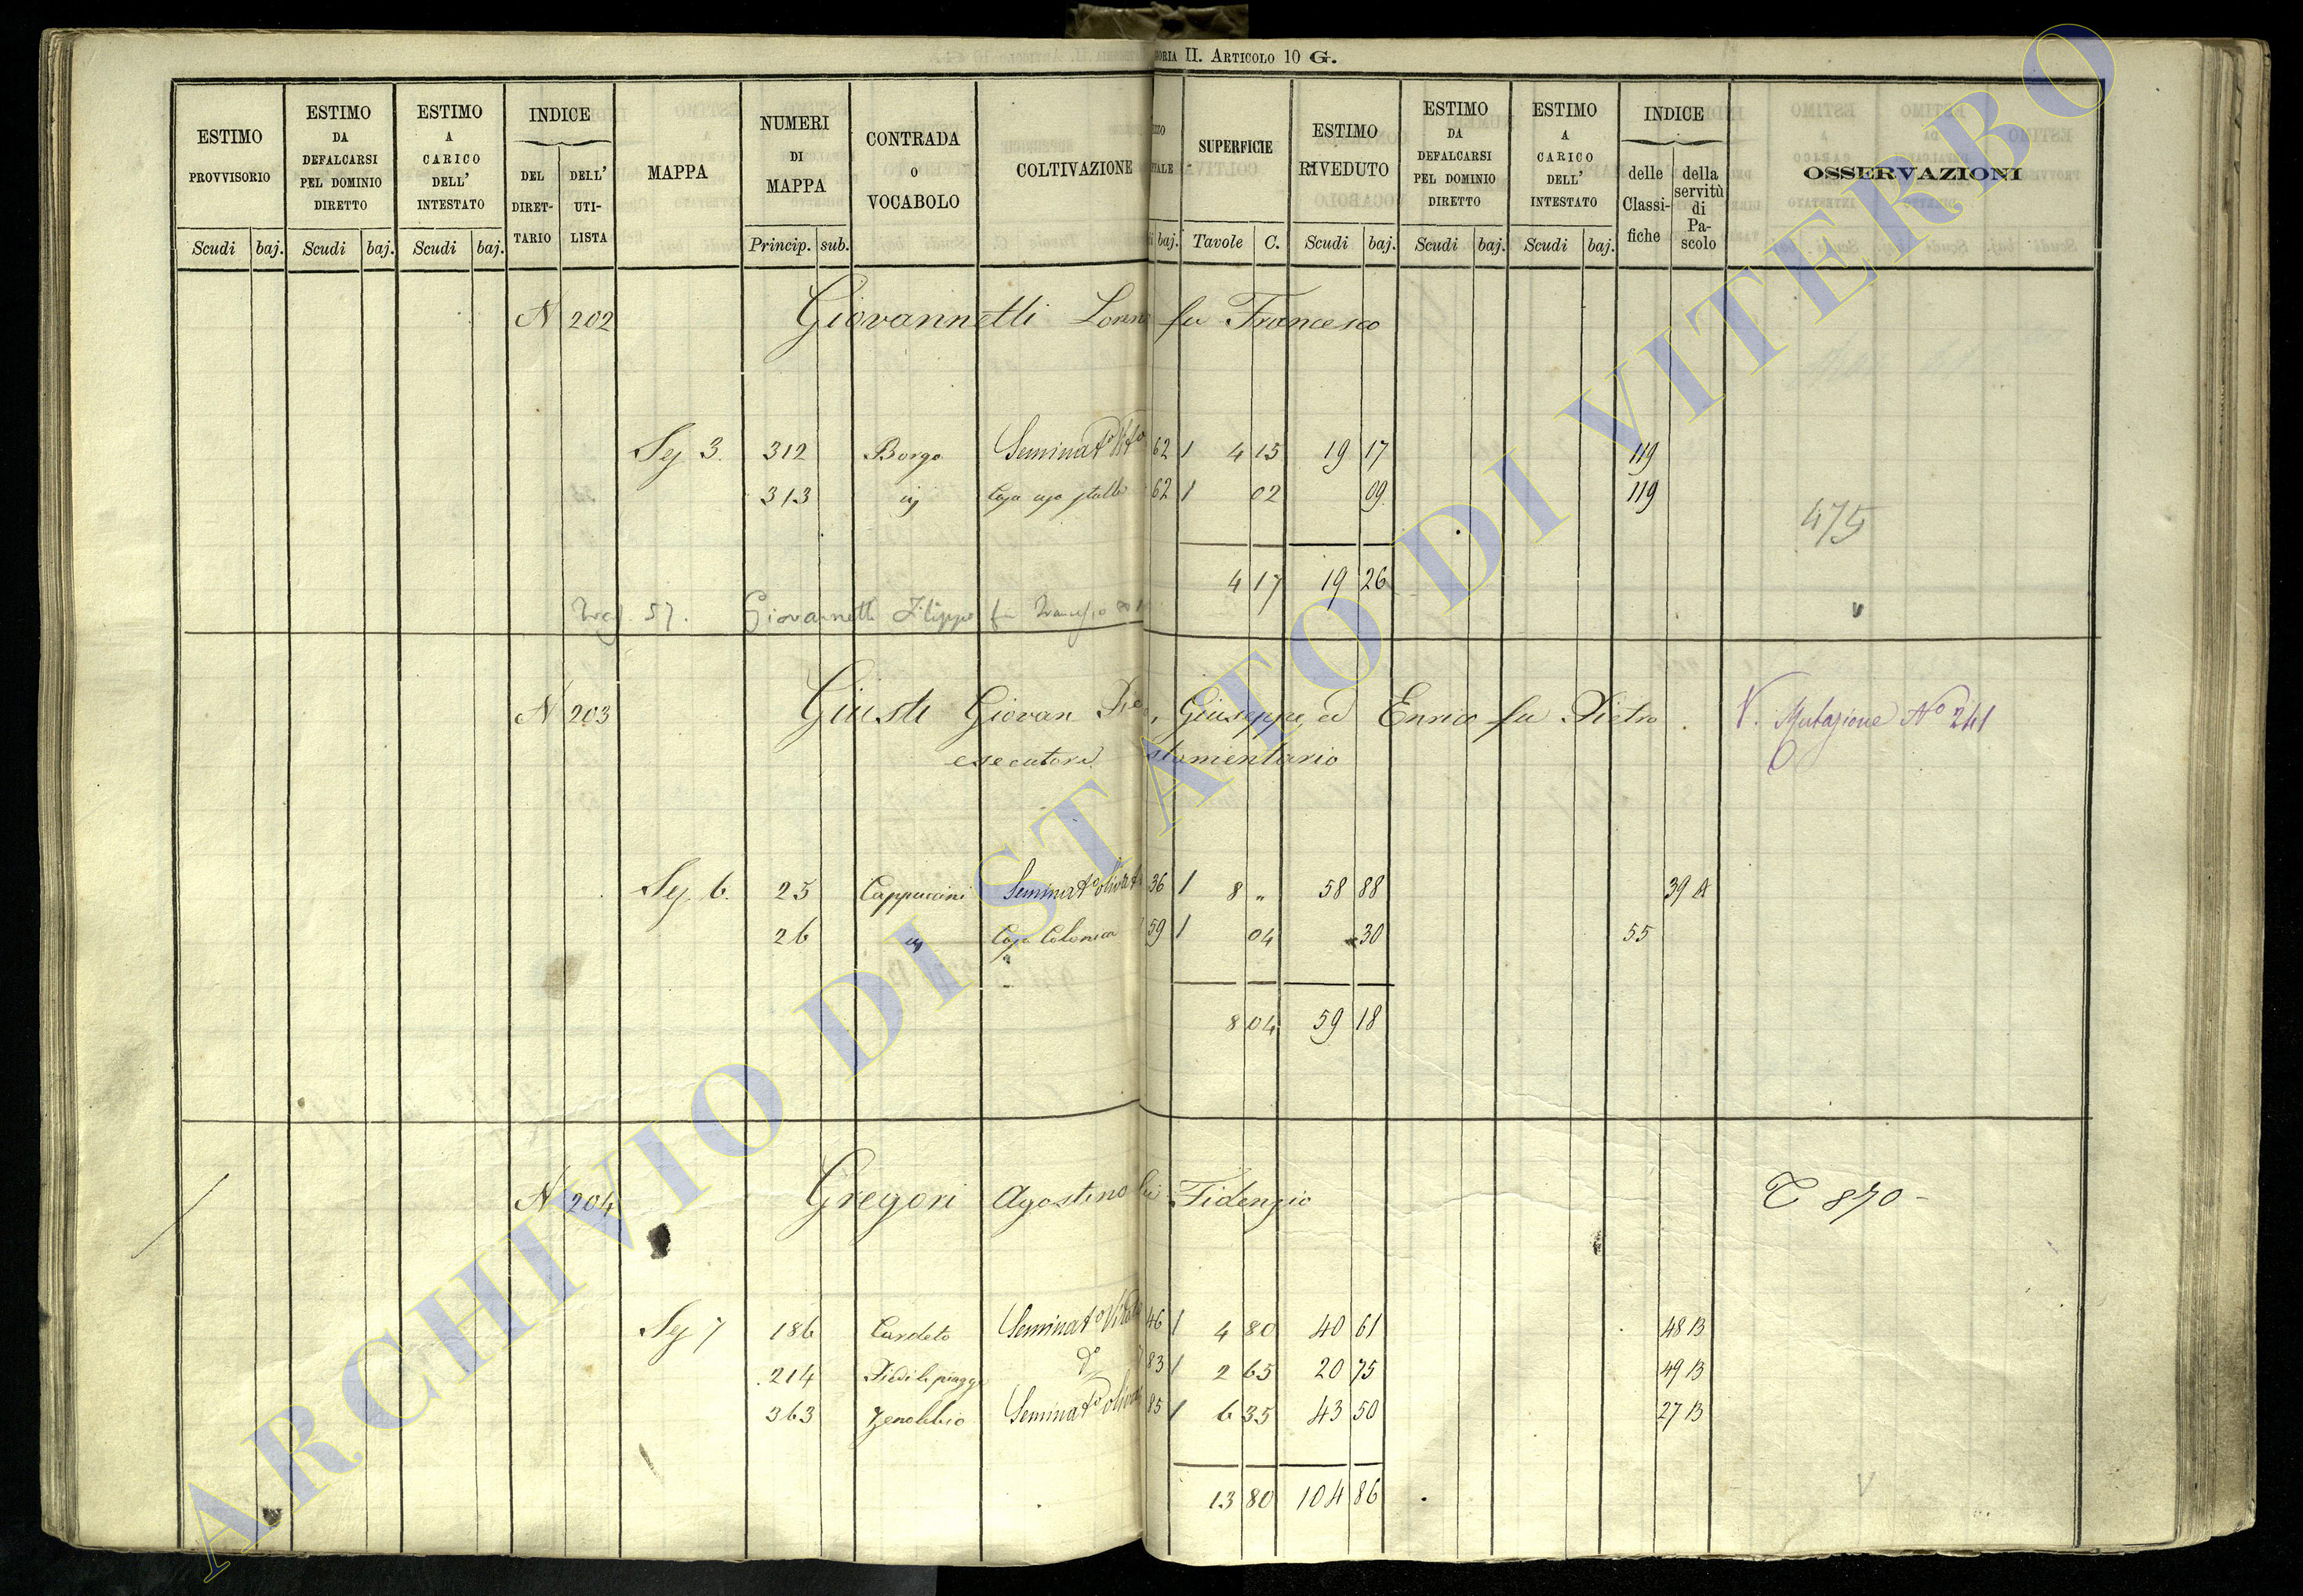 ORIA II. ARTICOLO 10 G.
ESTIMO PROVVISORIO
ESTIMO DA DEFALCARSI PEL DOMINIO DIRETTO
ESTIMO A CARICO DELL' INTESTATO
INDICE
DEL DIRET-TARIO
DELL' UTI-LISTA
MAPPA
NUMERI DI MAPPA
CONTRADA o VOCABOLO
COLTIVAZIONE
SUPERFICIE
ESTIMO RIVEDUTO
ESTIMO DA DEFALCARSI PEL DOMINIO DIRETTO
ESTIMO A CARICO DELL' INTESTATO
INDICE
delle Classi-fiche
della servitù di Pa-scolo
OSSERVAZIONI
Scudi baj. Scudi baj. Scudi baj. Princip. sub. baj. Tavole C. Scudi baj. Scudi baj. Scudi baj.
N 202 Giovannetti fu Francesco
Sez 3. 312 Borgo 62 1 4 15 19 17 119
313 Casa uso stalla 62 1 02 09 119
475
4 17 19 26
57. Giovannetti Filippo fu Francesco
N 203 Giusti Giovan , Giuseppe, ed Enrico fu Pietro. V. Mutazione No 241
esecutore stamentario
Sez. 6. 25 Cappuccini 36 1 8 " 58 88 39 A
26 Casa Colonica 59 1 04 30 55
8 04 59 18
N 204 Gregori Agostino Fidenzio 870
Sez 7 186 Cardeto 46 1 4 80 40 61 48 B
214 Piedi le piagge do 83 1 2 65 20 75 49 B
363 Zenobbio 85 1 6 35 43 50 27 B
13 80 104 86
ARCHIVIO DI STATO DI VITERBO